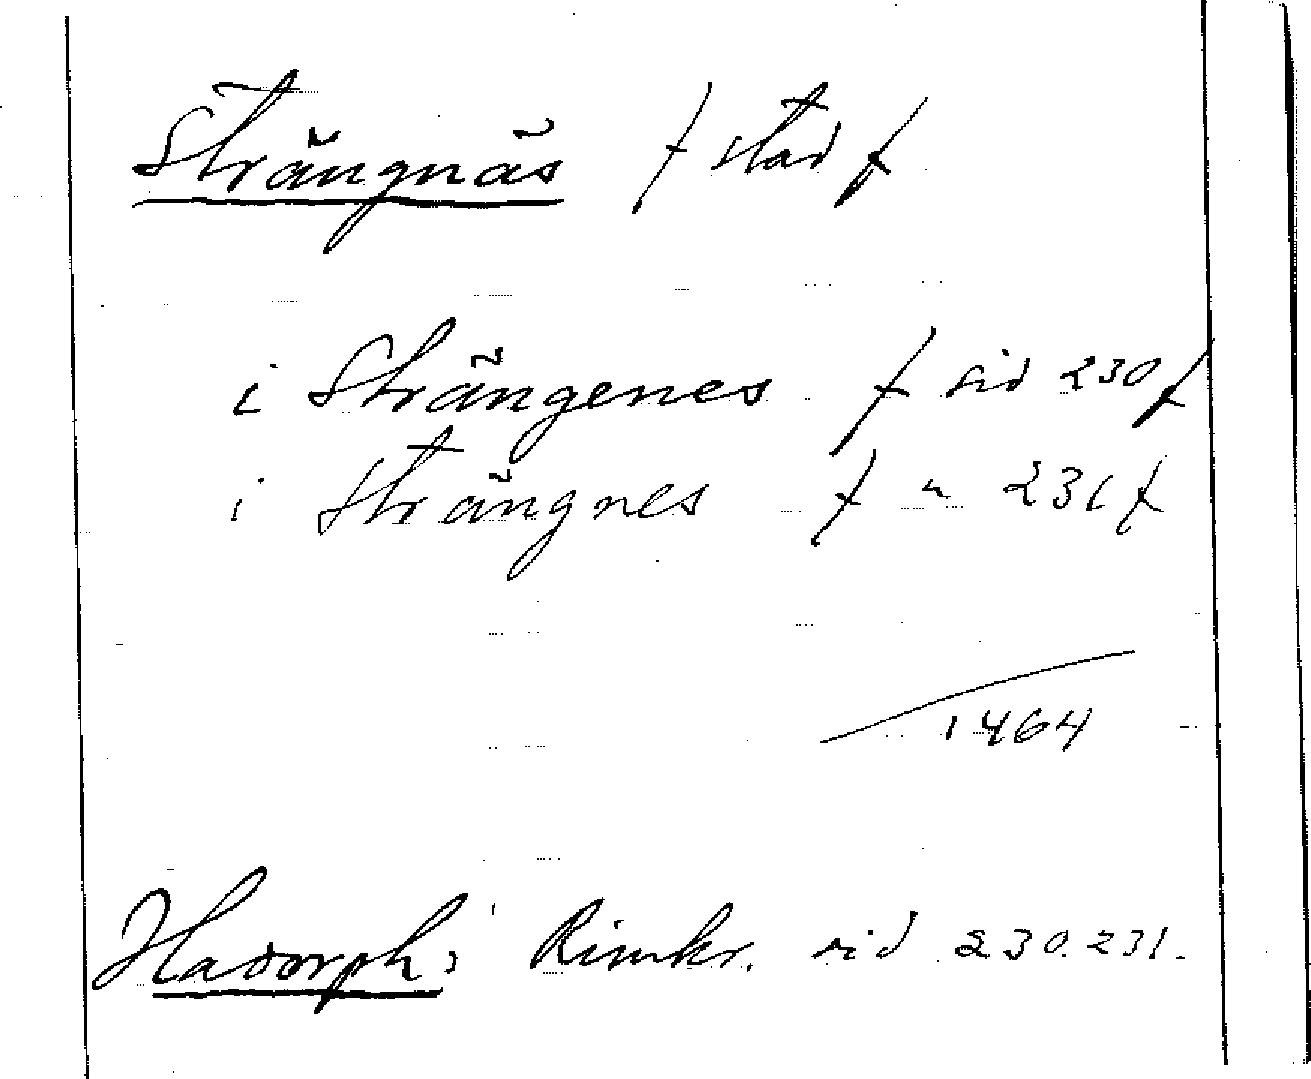 Strängnäs / stad /
i Strängenes / sid 230 /
i Strängnes / " 231 /
1464
Hadorph: Rimkr. sid 230.231.